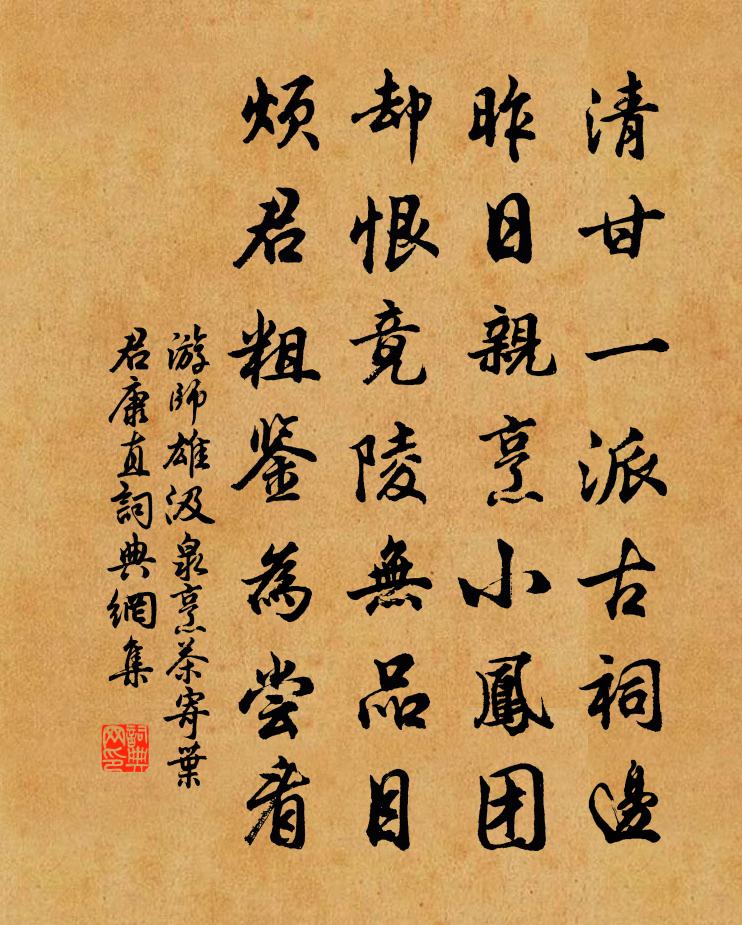 清甘一派古祠邊
昨日親烹小鳳团
却恨竟陵無品目
煩君粗鉴為尝看
游師雄汲泉烹茶寄葉
君康直詞典網集
詞典
网印